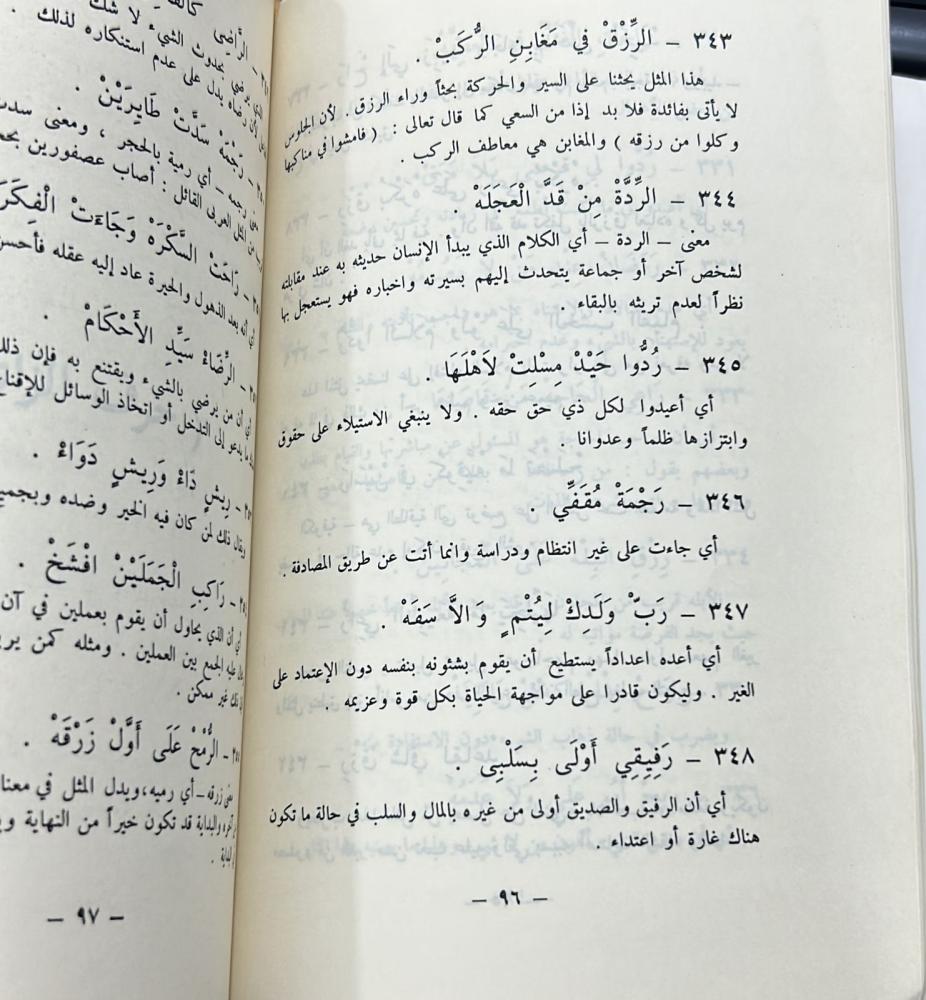 ٣٤٣ – الرِّزْقْ في مَغَابِنِ الرُّكَبْ .
هذا المثل يحثنا على السير والحركة بحثاً وراء الرزق . لأن الجلوس
لا يأتى بفائدة فلا بد إذا من السعي كما قال تعالى : ( فامشوا في مناكبها
وكلوا من رزقه ) والمغابن هي معاطف الركب .
٣٤٤ – الرِّدَّةْ مِنْ قَدَّ الْعَجَلَهْ .
معنى – الردة – أي الكلام الذي يبدأ الإنسان حديثه به عند مقابلته
لشخص آخر أو جماعة يتحدث إليهم بسيرته واخباره فهو يستعجل بها
نظراً لعدم تريثه بالبقاء .
٣٤٥ – رُدُّوا حَيْدْ مِسْلِتْ لاَهْلَهَا .
أي أعيدوا لكل ذي حق حقه . ولا ينبغي الاستيلاء على حقوق
وابتزازها ظلماً وعدوانا .
٣٤٦ – رَجْمَةْ مُقَفِّي .
أي جاءت على غير انتظام ودراسة وانما أتت عن طريق المصادفة .
٣٤٧ – رَبّ وَلَدِكْ لِيُتْمٍ وَالاَّ سَفَهْ .
أي أعده اعداداً يستطيع أن يقوم بشئونه بنفسه دون الإعتماد على
الغير . وليكون قادرا على مواجهة الحياة بكل قوة وعزيمه .
٣٤٨ – رَفِيقِي أَوْلَى بِسَلْبِى .
أي أن الرفيق والصديق أولى من غيره بالمال والسلب في حالة ما تكون
هناك غارة أو اعتداء .
– ٩٦ –
الرَّاضِي
يرضى بحدوث الشيء لا شك
رضاه يدل على عدم استنكاره لذلك .
رَجْمَهْ سَدَّتْ طَايِرَيْنْ .
رجمه – أي رمية بالحجر ، ومعنى سدت
المثل العربى القائل : أصاب عصفورين بحجر
رَاحَتْ السَّكْرَهْ وَجَاءَتْ الْفِكَرَ
أي أنه بعد الذهول والحيرة عاد إليه عقله فأحسن
الرِّضَاءْ سَيِّدِ الأَحْكَامْ .
أي أن من يرضي بالشيء ويقتنع به فإن ذلك
ما يدعو إلى التدخل أو اتخاذ الوسائل للإقناع
رِيشٍ دَاءْ وَرِيشٍ دَوَاءْ .
يقال ذلك لمن كان فيه الخير وضده وبجميع
رَاكِبِ الْجَمَلَيْنْ افْشَخْ .
أي أن الذي يحاول أن يقوم بعملين في آن
عليه الجمع بين العملين . ومثله كمن يريد
ذلك غير ممكن .
الرُّمْحْ عَلَى أَوَّلْ زَرْقَهْ .
زرقه – أي رميه، ويدل المثل في معناه
والبداية قد تكون خيراً من النهاية
– ٩٧ –